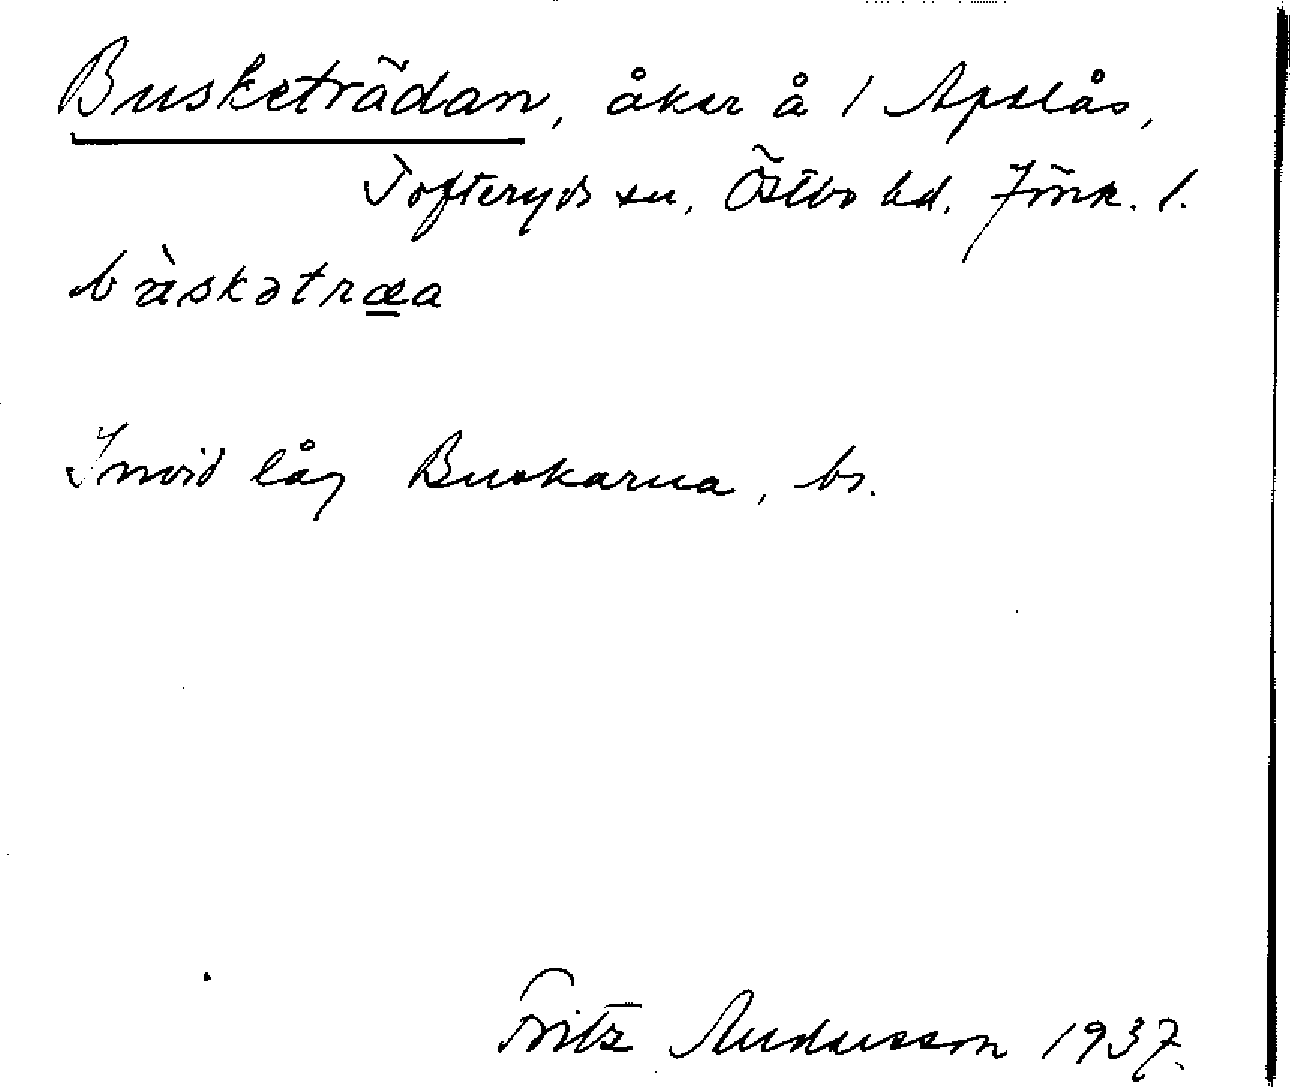 Busketrädan, åker å 1 Apelås,
Tofteryds sn, Östbo hd. Jönk. l.
bùskətræa
Invid låg Buskarna, bs.
Fritz Andersson 1937.